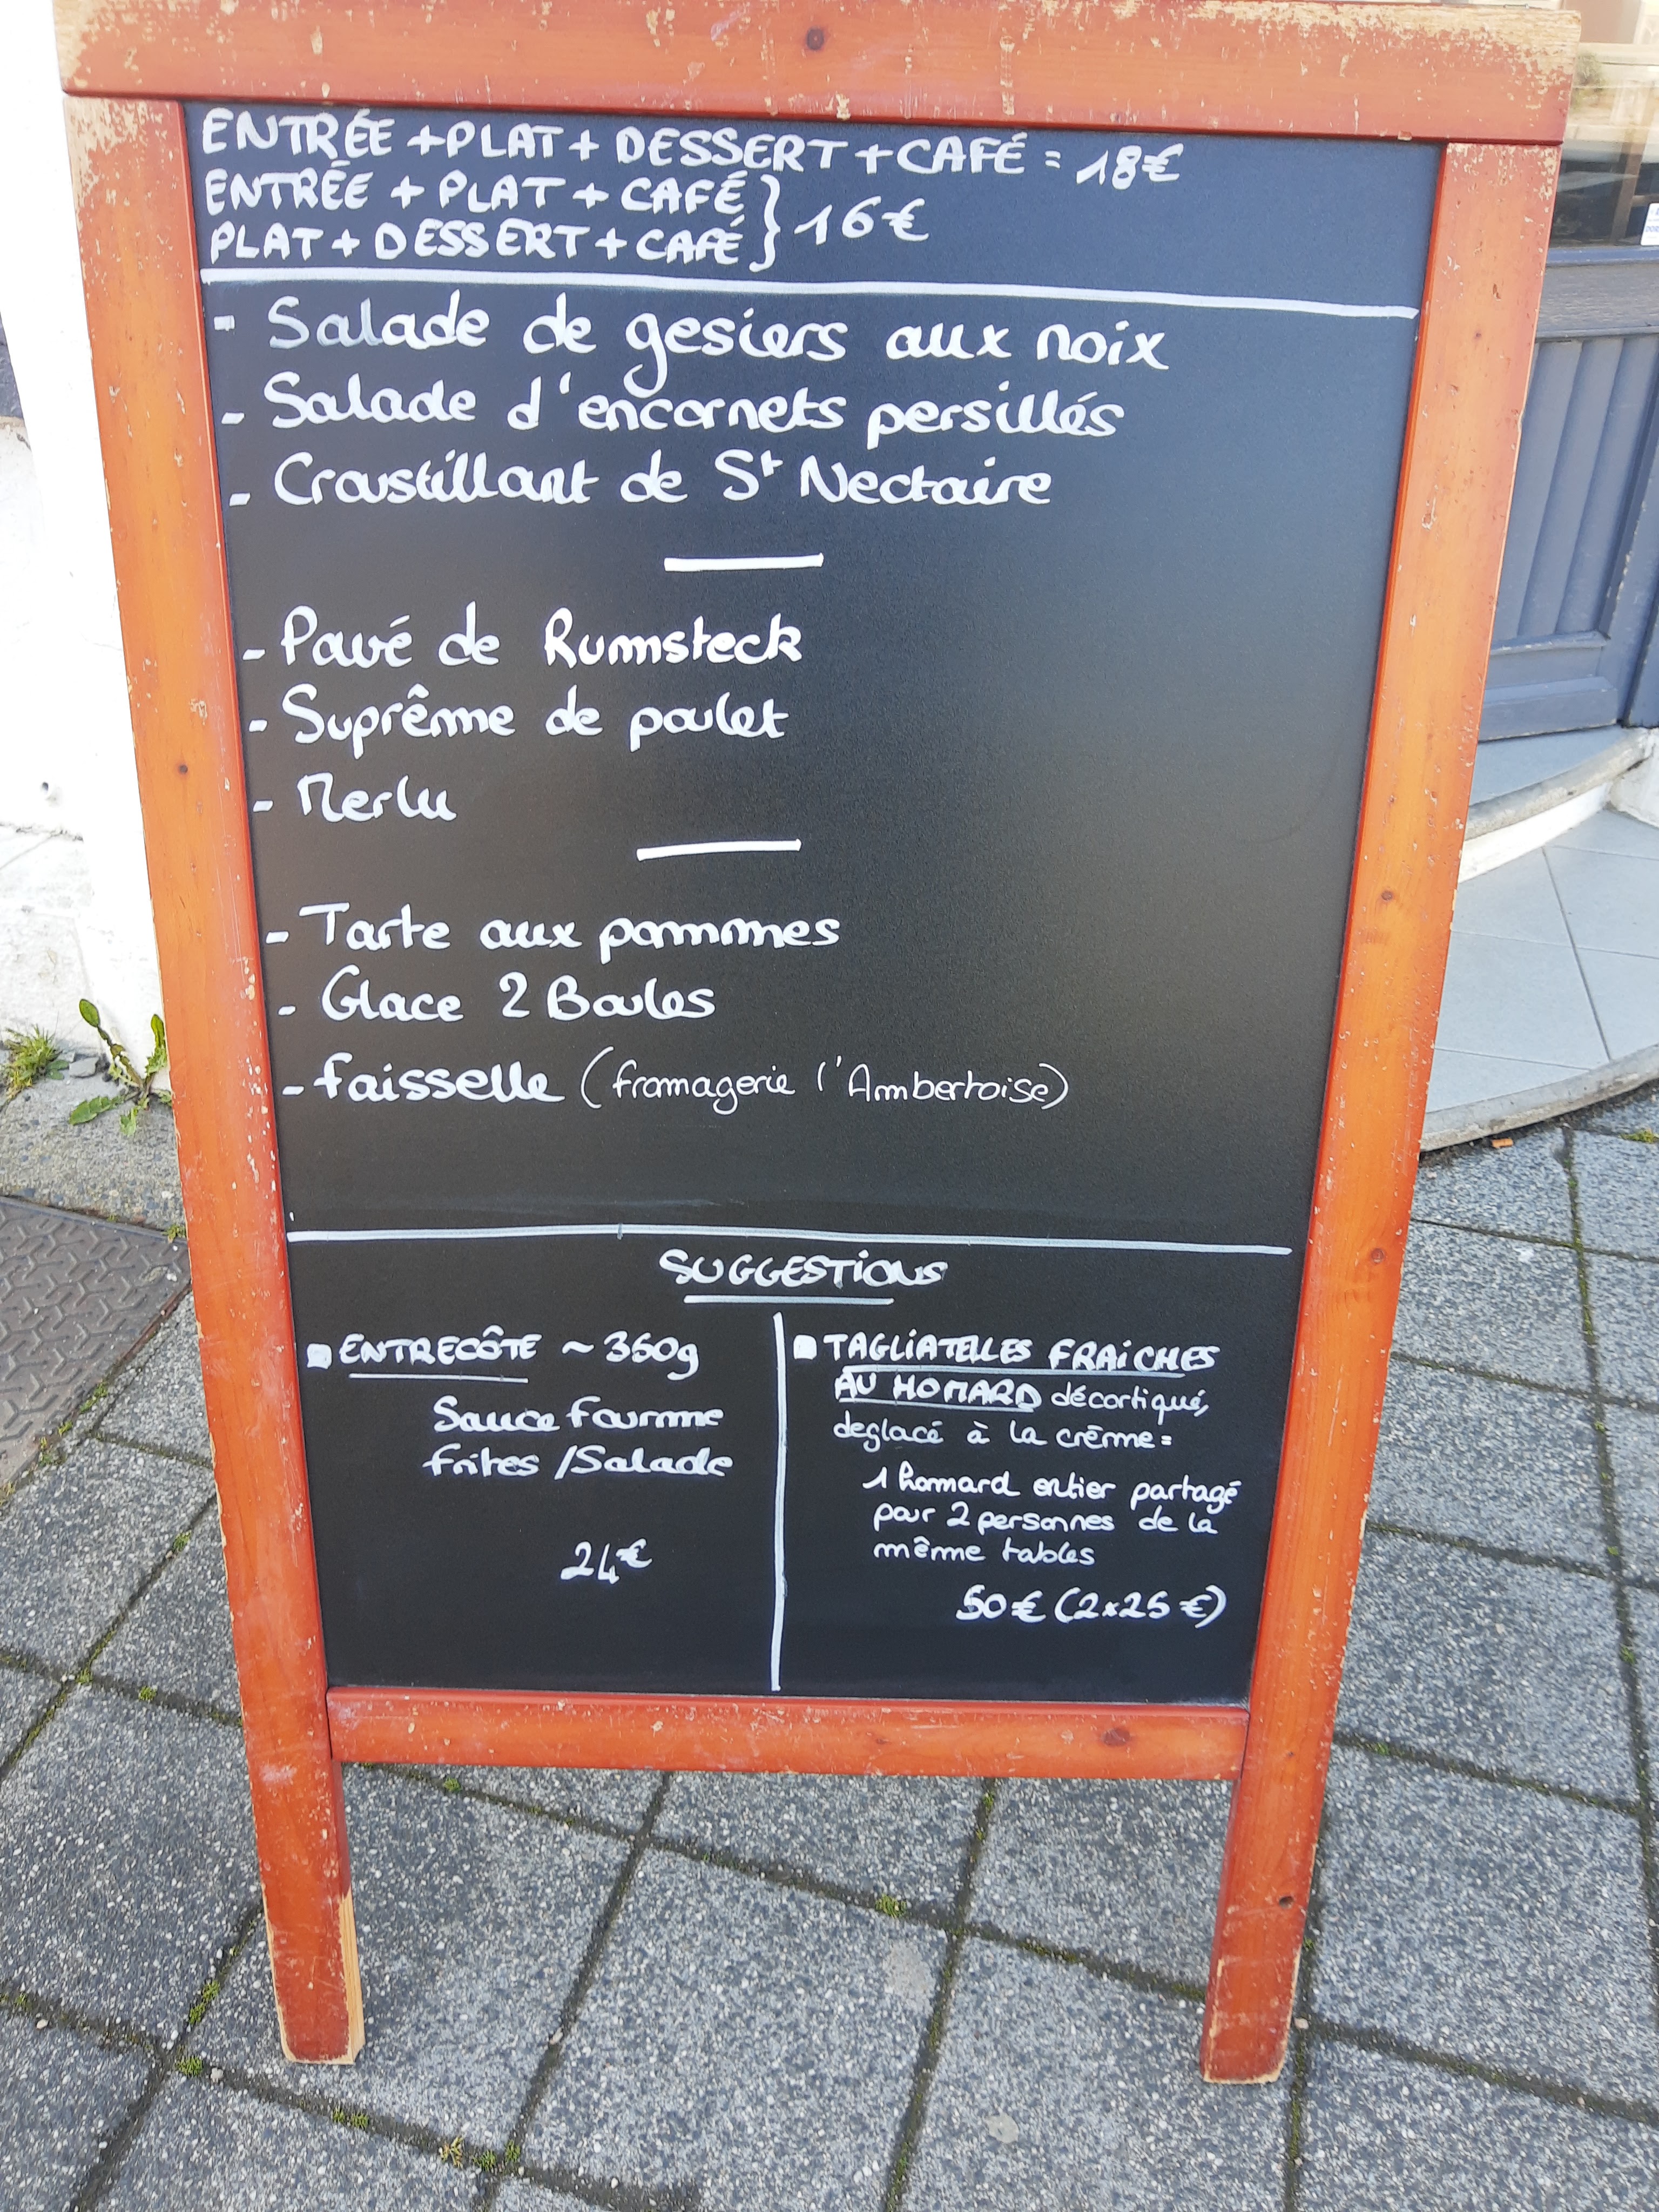 ENTRÉE + PLAT + DESSERT + CAFÉ = 18€
ENTRÉE + PLAT + CAFÉ } 16€
PLAT + DESSERT + CAFÉ
- Salade de gesiers aux noix
- Salade d'encornets persillés
- Croustillant de St Nectaire
- Pavé de Rumsteck
- Suprême de poulet
- Merlu
- Tarte aux pommes
- Glace 2 Boules
- faisselle (fromagerie l'Ambertoise)
SUGGESTIONS
ENTRECÔTE ~ 350g
Sauce fourme
frites / Salade
24€
TAGLIATELLES FRAICHES
AU HOMARD décortiqué,
deglacé à la crème =
1 homard entier partagé
pour 2 personnes de la
même tables
50€ (2x25€)